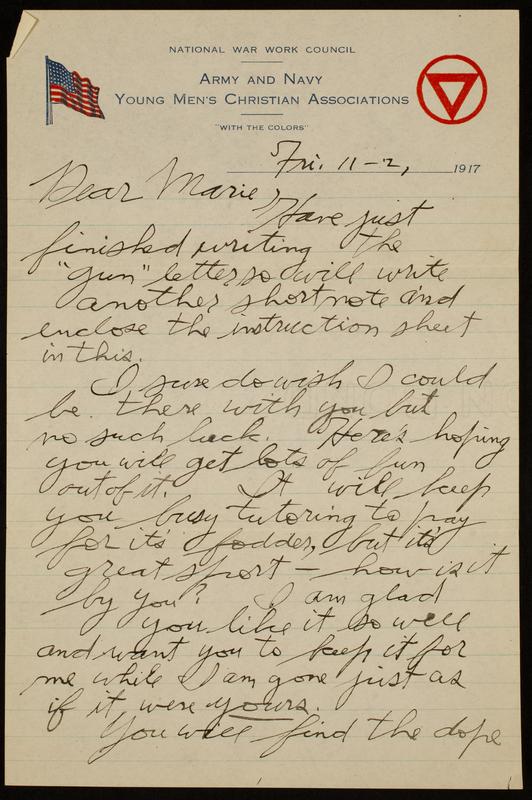 NATIONAL WAR WORK COUNCIL
ARMY AND NAVY
YOUNG MEN'S CHRISTIAN ASSOCIATIONS
"WITH THE COLORS"
Fri. 11-2, 1917
Dear Marie,
Have just
finished writing the
"gun" letter so will write
another short note and
enclose the instruction sheet
in this.
I sure do wish I could
be there with you but
no such luck. Here's hoping
you will get lots of fun
out of it. It will keep
you busy tutoring to pay
for it's fodder, but it's
great sport — how is it
by you? I am glad
you like it so well
and want you to keep it for
me while I am gone just as
if it were yours.
You will find the dope